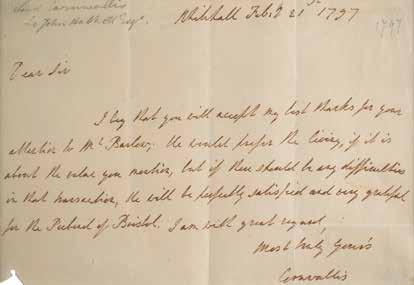 Lord Cornwallis
to John Esqr.
Whitehall Feb: 21st 1797
1797
Dear Sir
I beg that you will accept my best thanks for your
attention to Mr. Barlow; He would prefer the living, if it is
about the value you mention, but if there should be any difficulties
in that transaction, He will be perfectly satisfied and very grateful
for the Prebend of Bristol. I am with great regard,
Most truly Yours
Cornwallis